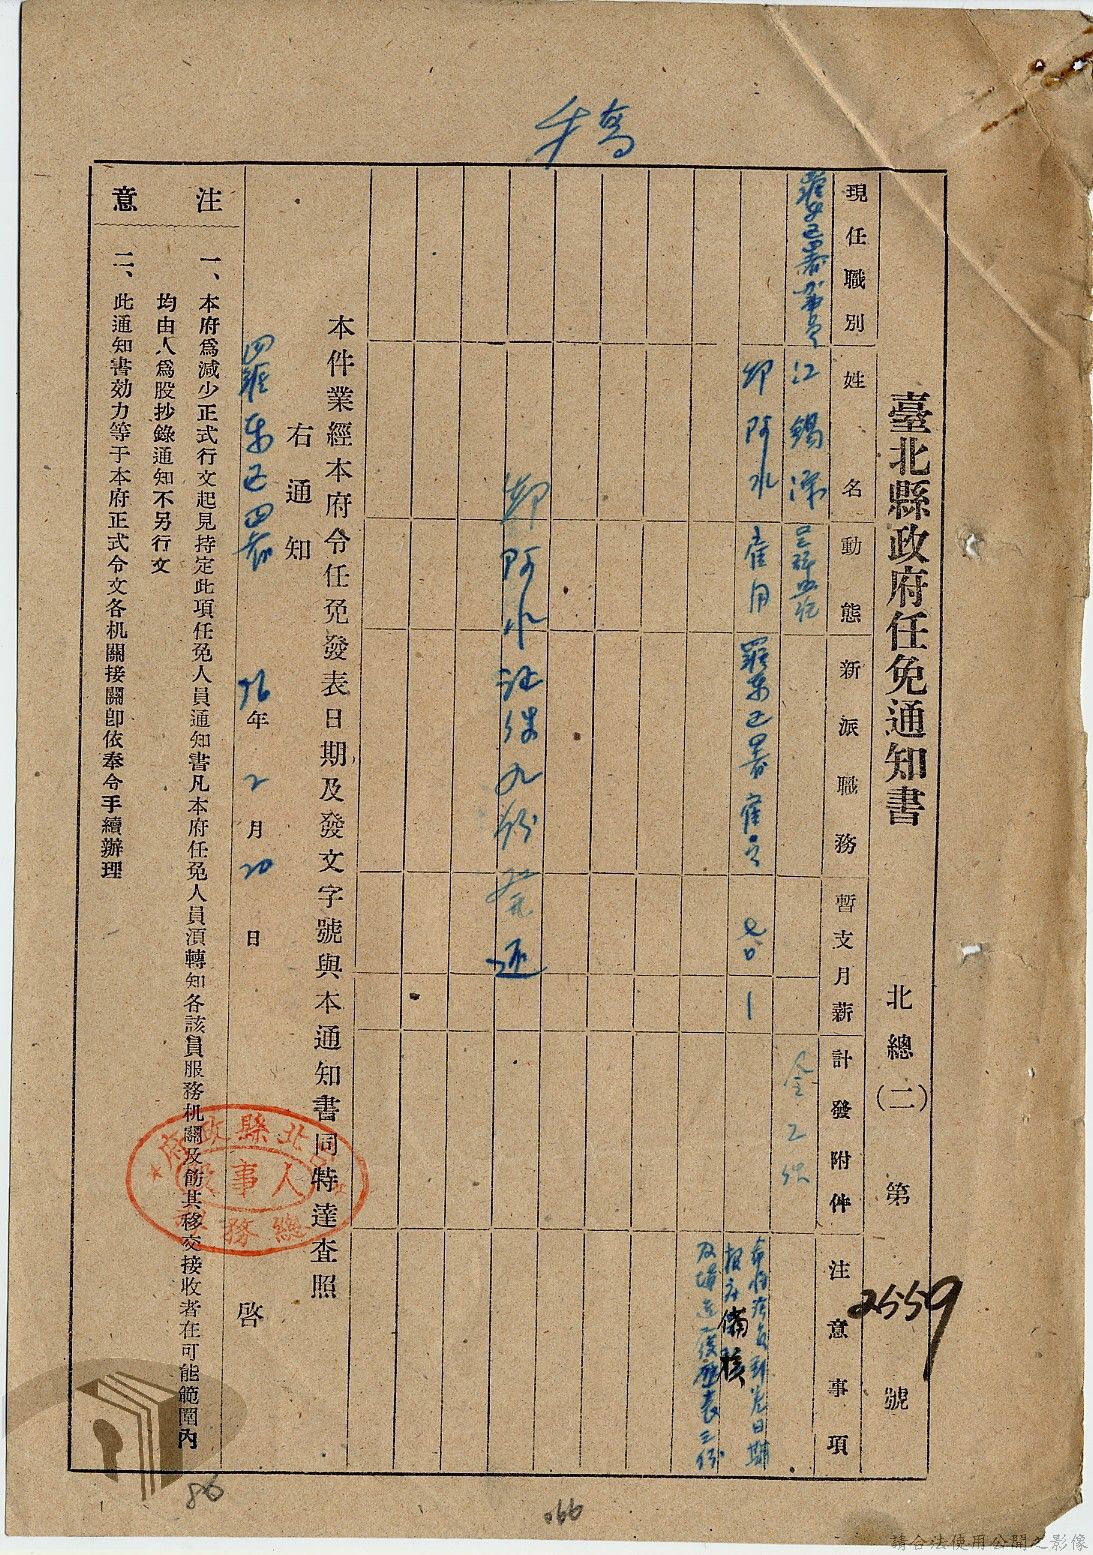 稿
臺北縣政府任免通知書
北總(二)第2559號
現任職別
姓名
動態
新派職務
暫支月薪
計發附件
注意事項
江錫
邱阿水
雇用
羅東區署雇員
七〇
報府備核
及填送履歷表三份
鄭阿水證件九份發還
本件業經本府令任免發表日期及發文字號與本通知書同特達查照
右通知
羅東區
36年2月20日
啓
注意
一、本府爲減少正式行文起見持定此項任免人員通知書凡本府任免人員湏轉知各該員服務机關及飭其移交接收者在可能範圍內
均由人爲股抄錄通知不另行文
二、此通知書効力等于本府正式令文各机關接關卽依奉令手續辦理
北縣政府
人事股
總務
86
066
請合法使用公開之影像